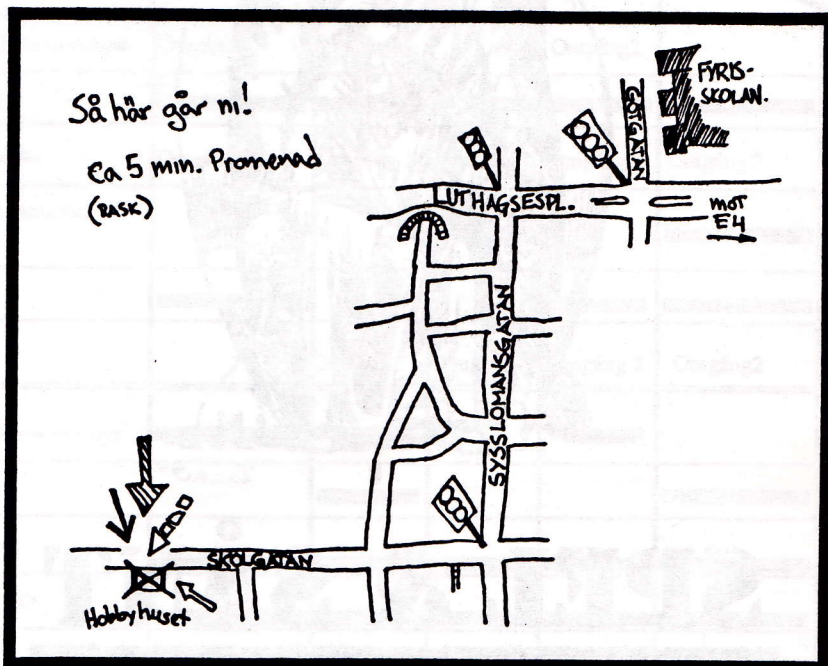 Så här går ni!
Ca 5 min. Promenad
(RASK)
FYRIS-
SKOLAN.
GÖTGATAN
LUTHAGSESPL.
mot
E4
SYSSLOMANSGATAN
SKOLGATAN
Hobbyhuset